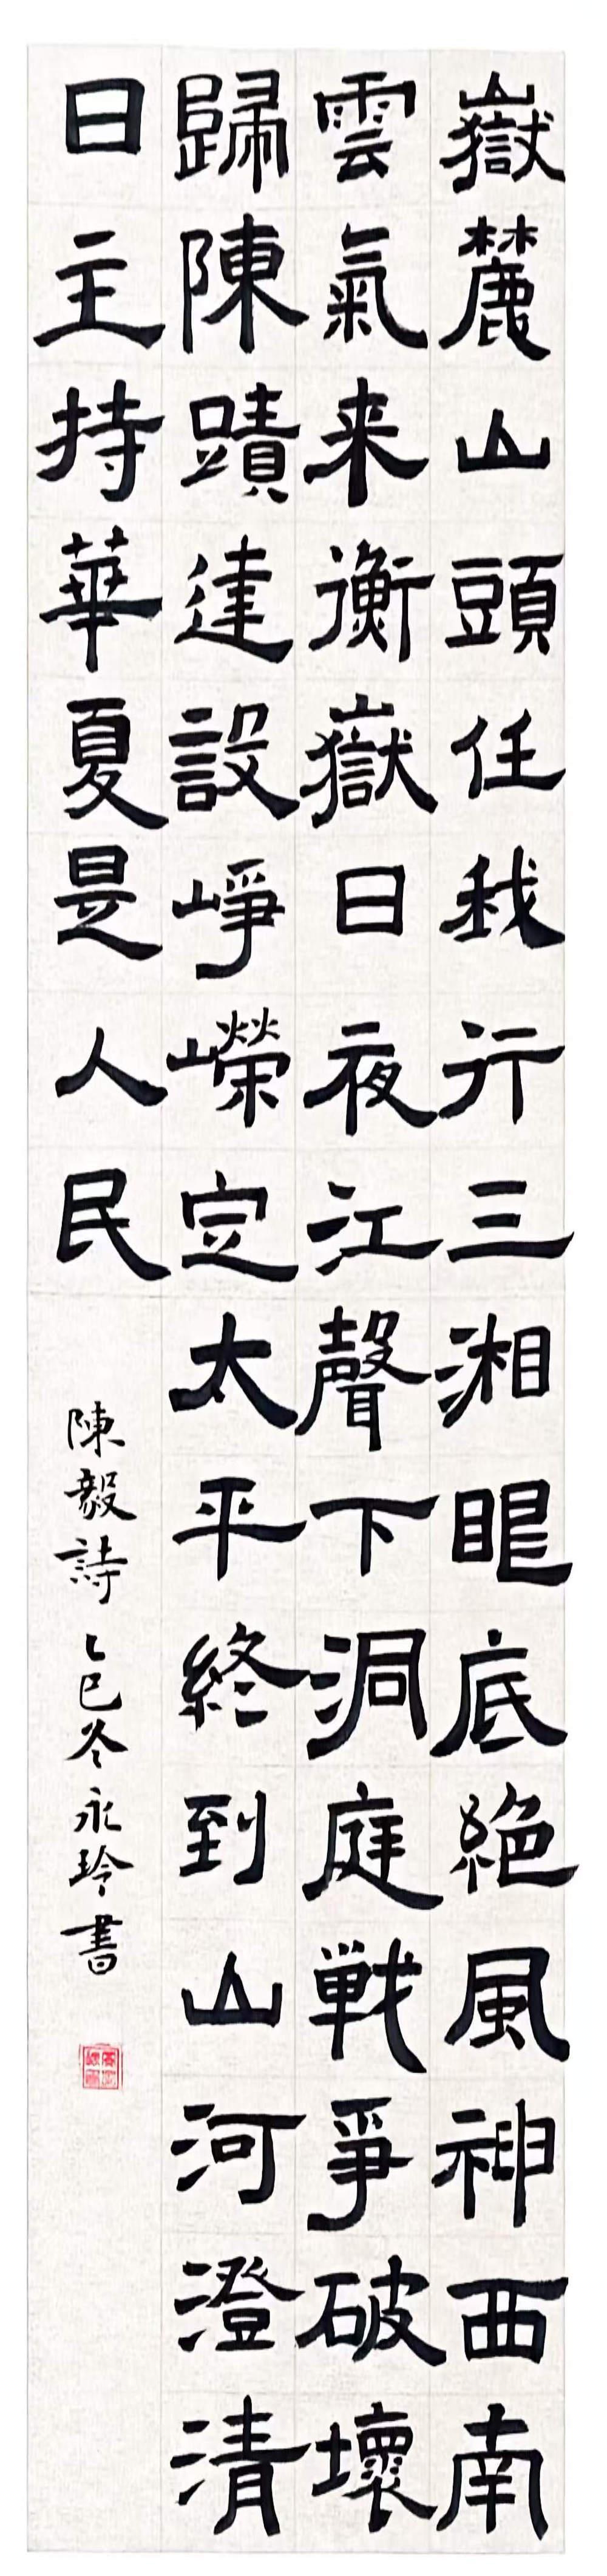 嶽麓山頭任我行三湘眼底絕風神西南
雲氣来衡嶽日夜江聲下洞庭戦爭破壞
歸陳蹟建設崢嶸定太平終到山河澄清
日主持華夏是人民
陳毅詩乙巳冬永玲書